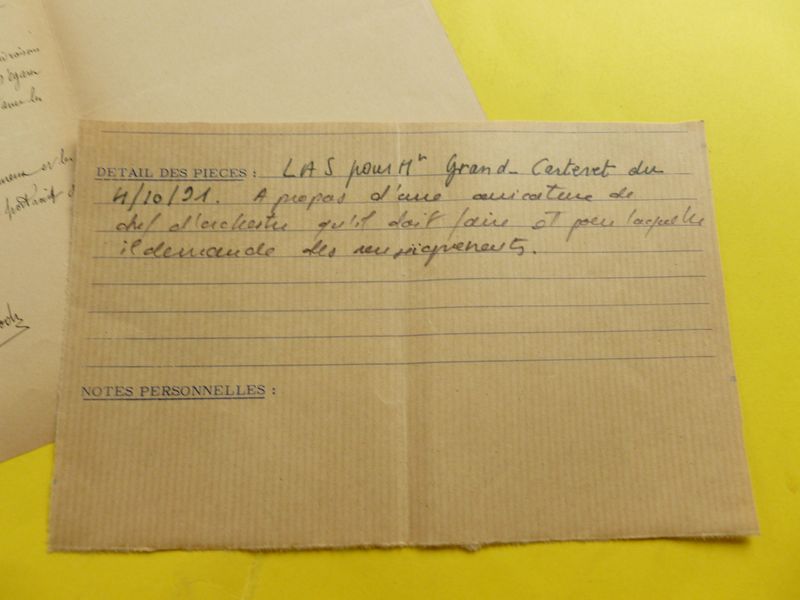 DETAIL DES PIECES : LAS pour Mr Grand-Carteret du
4/10/91. A propos d'une caricature de
chef d'orchestre qu'il doit faire et pour laquelle
il demande des renseignements.
NOTES PERSONNELLES :